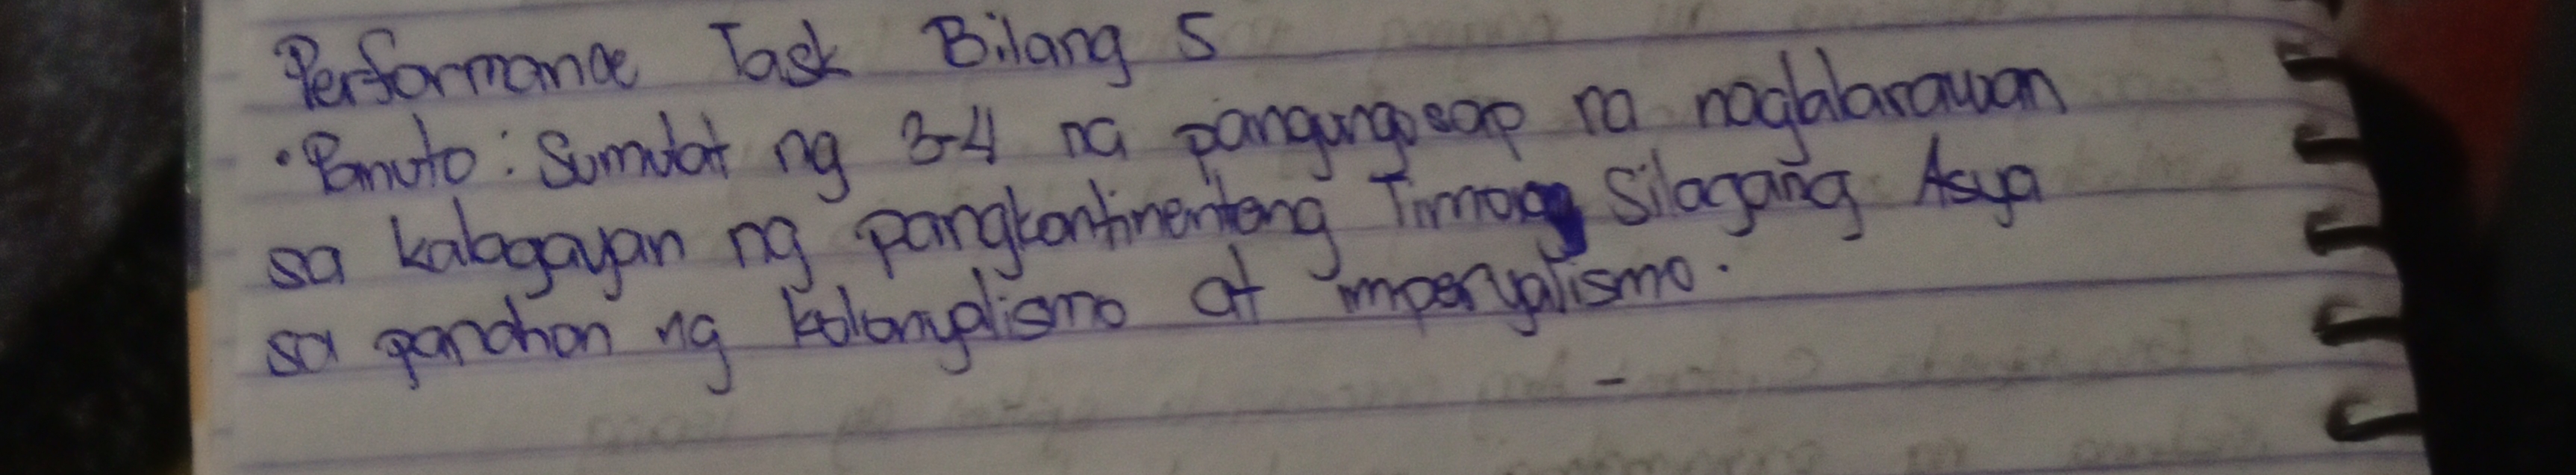 Performance Task Bilang 5
• Panuto: Sumulat ng 3-4 na pangungusap na naglalarawan
sa kalagayan ng pangkontinenteng Timog Silagang Asya
sa panahon ng kolonyalismo at imperyalismo.